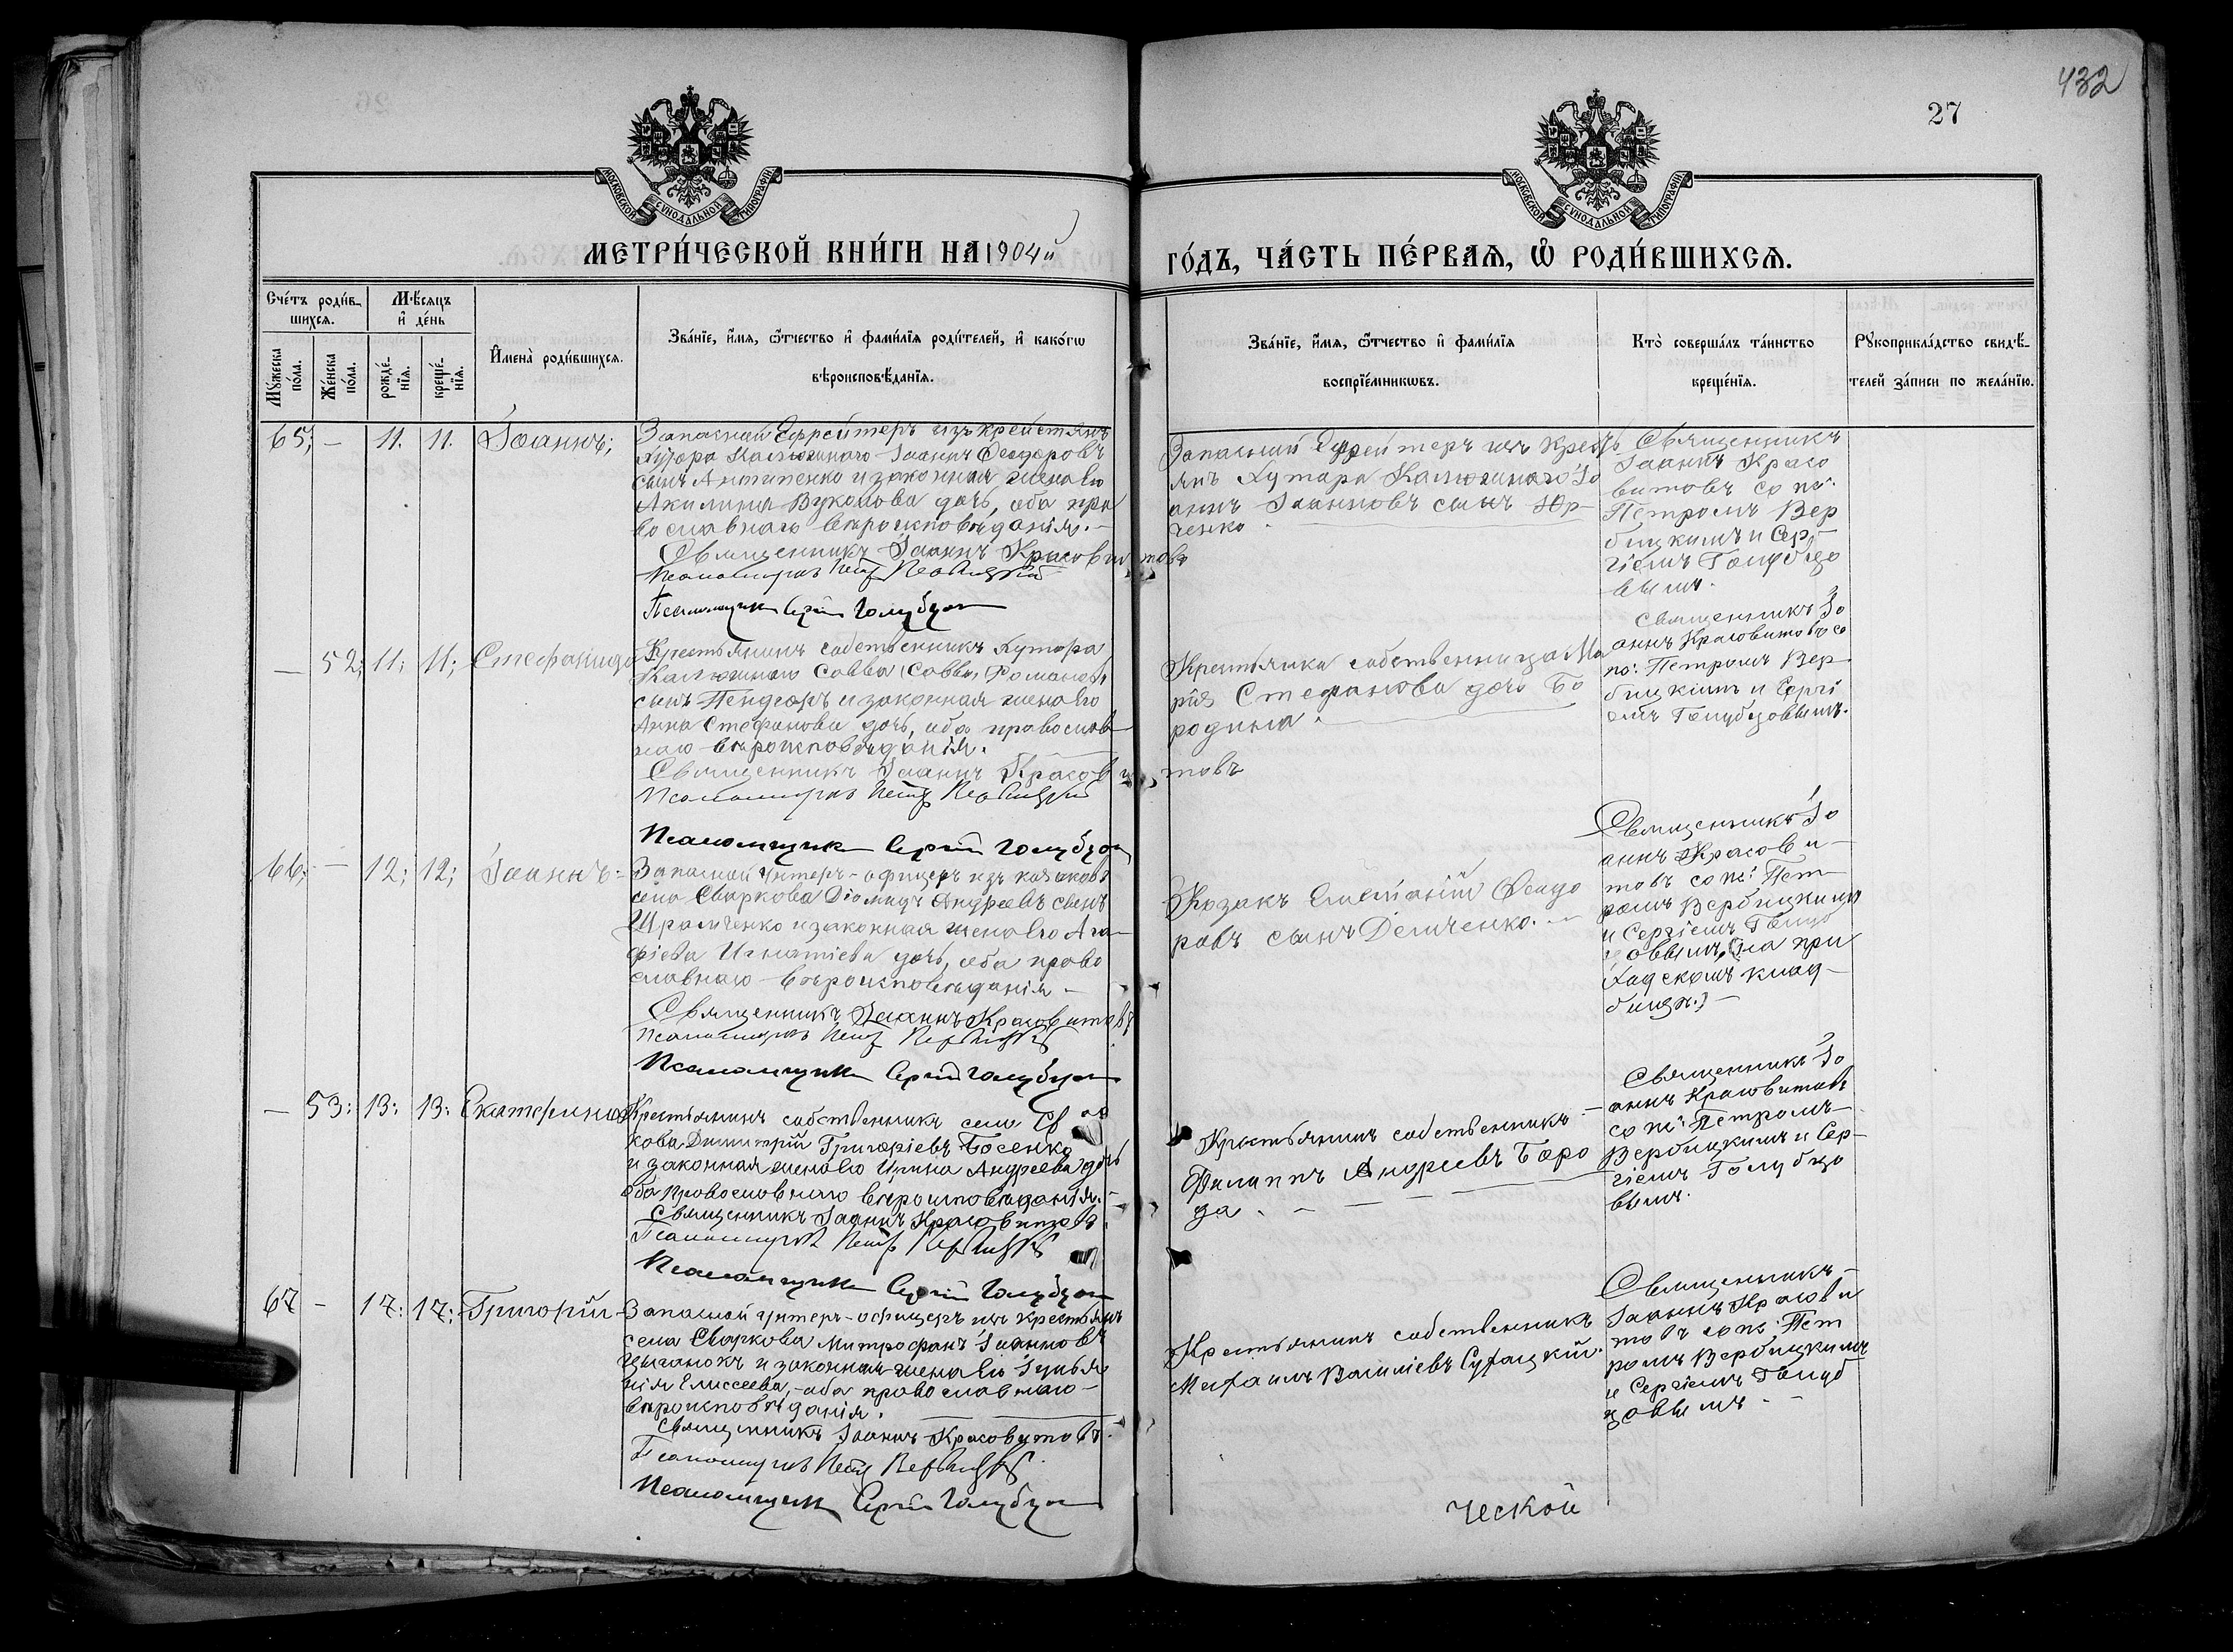 432
27
МОСКОВСКОЙ СѴНОДАЛЬНОЙ ТИПОГРАФІИ
МОСКОВСКОЙ СѴНОДАЛЬНОЙ ТИПОГРАФІИ
МЕТРИ́ЧЕСКОЙ КНИ́ГИ НА 1904й
ГО́ДЪ, ЧА́СТЬ ПЕ́РВАѦ, Ѡ҆ РОДИ́ВШИХСѦ.
Сче́тъ роди́в-
шихсѧ.
Мꙋ́жеска
по́ла.
Же́нска
по́ла.
Мѣ́сѧцъ
и҆ де́нь
рожде́-
нїѧ.
креще́-
нїѧ.
И҆мена̀ роди́вшихсѧ.
Зва́нїе, и҆́мѧ, ѻ҆́тчество и҆ фами́лїѧ роди́телей, и҆ како́гѡ
вѣроисповѣ́данїѧ.
Зва́нїе, и҆́мѧ, ѻ҆́тчество и҆ фами́лїѧ
воспрїе́мникѡвъ.
Кто̀ соверша́лъ та́инство
креще́нїѧ.
Рꙋкоприкла́дство свидѣ́-
телей за́писи по жела́нїю.
65; - 11. 11. Іоаннъ;
Запасный Ефрейтеръ изъ крестьянъ
Хутора Калюжнаго Іоаннъ Ѳеодоровъ
сынъ Антипенко и законная жена его
Акилина Вуколова дочь, оба пра
вославнаго вѣроисповѣданія.-
Священникъ Іоаннъ Красовитовъ
Псаломщикъ Петръ Вербицкій
Псаломщикъ Сергій Голубцовъ
Запасный Ефрейтеръ изъ Кресть
янъ Хутора Калюжнаго Іо
аннъ Іоанновъ сынъ Юр-
ченко.
Священникъ
Іоаннъ Красо
витовъ со пс:
Петромъ Вер
бицкимъ и Сер-
гіемъ Голубцо
вымъ.
— 52; 11; 11; Стефанида
Крестьянинъ собственникъ Хутора
Калюжнаго Савва (Савва) Романовъ
сынъ и законная жена его
Анна Стефанова дочь, оба православ
наго вѣроисповѣданія.
Священникъ Іоаннъ Красовитовъ
Псаломщикъ Петръ Вербицкій
Псаломщикъ Сергій Голубцовъ
Крестьянка собственница Ма
рія Стефанова дочь Бо
родина.
Священникъ Іо
аннъ Красовитовъ со
пс: Петромъ Вер-
бицкимъ и Сергі
емъ Голубцовымъ.
66; - 12; 12; Іоаннъ-
Запасной Унтеръ-офицеръ изъ казаковъ
села Сваркова Діомидъ Андреевъ сынъ
Шрамченко и законная жена его Ага
фіева Игнатіева дочь, оба право
славнаго вѣроисповѣданія-
Священникъ Іоаннъ Красовитовъ
Псаломщикъ Петръ Вербицкій
Псаломщикъ Сергій Голубцовъ
Козакъ Ѳеодо
ровъ сынъ Демченко. -
Священникъ Іо
аннъ Красови-
товъ со пс: Пет-
ромъ Вербицкимъ
и Сергіемъ Голуб
цовымъ, (на при
ходскомъ клад-
бищѣ.) -
— 53: 13: 13: Екатерина
Крестьянинъ собственникъ села Свар
кова Димитрій Григоріевъ Босенко
и законная жена его Ирина Андреева дочь
оба православнаго вѣроисповѣданія.-
Священникъ Іоаннъ Красовитовъ.
Псаломщикъ Петръ Вербицкій
Псаломщикъ Сергій Голубцовъ
Крестьянинъ собственникъ -
Филиппъ Андреевъ Боро
да. -
Священникъ Іо
аннъ Красовитовъ
со пс: Петромъ
Вербицкимъ и Сер-
гіемъ Голубцо
вымъ.
67 - 17: 17: Григорій-
Запасной Унтеръ-офицеръ изъ крестьянъ
села Сваркова Митрофанъ Іоанновъ
Цыганокъ и законная жена его Іульян
нія Елисеева, - оба православнаго-
вѣроисповѣданія.
Священникъ Іоаннъ Красовитовъ.
Псаломщикъ Петръ Вербицкій
Псаломщикъ Сергій Голубцовъ
Крестьянинъ собственникъ
Михаилъ Василіевъ Сухацкій.
Священникъ-
Іоаннъ Красови
товъ со пс: Пет
ромъ Вербицкимъ
и Сергіемъ Голуб
цовымъ -
ческой